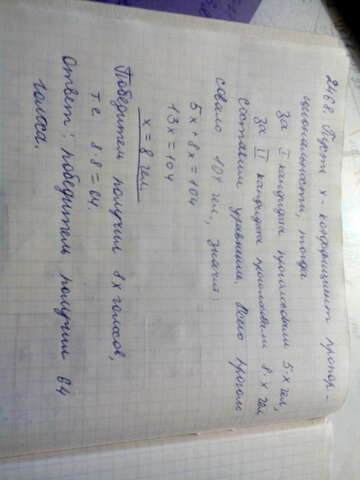 2468. Пусть x - коэффициент пропор-
циональности, тогда
за I кандидата проголосовали 5·x чел,
за II кандидата проголосовали 8·x чел
Составим уравнение. Всего проголо
совало 104 чел., значит:
5x + 8x = 104
13x = 104
x = 8 чел
Победитель получил 8x голосов,
т.е. 8·8 = 64.
Ответ: победитель получил 64
голоса.